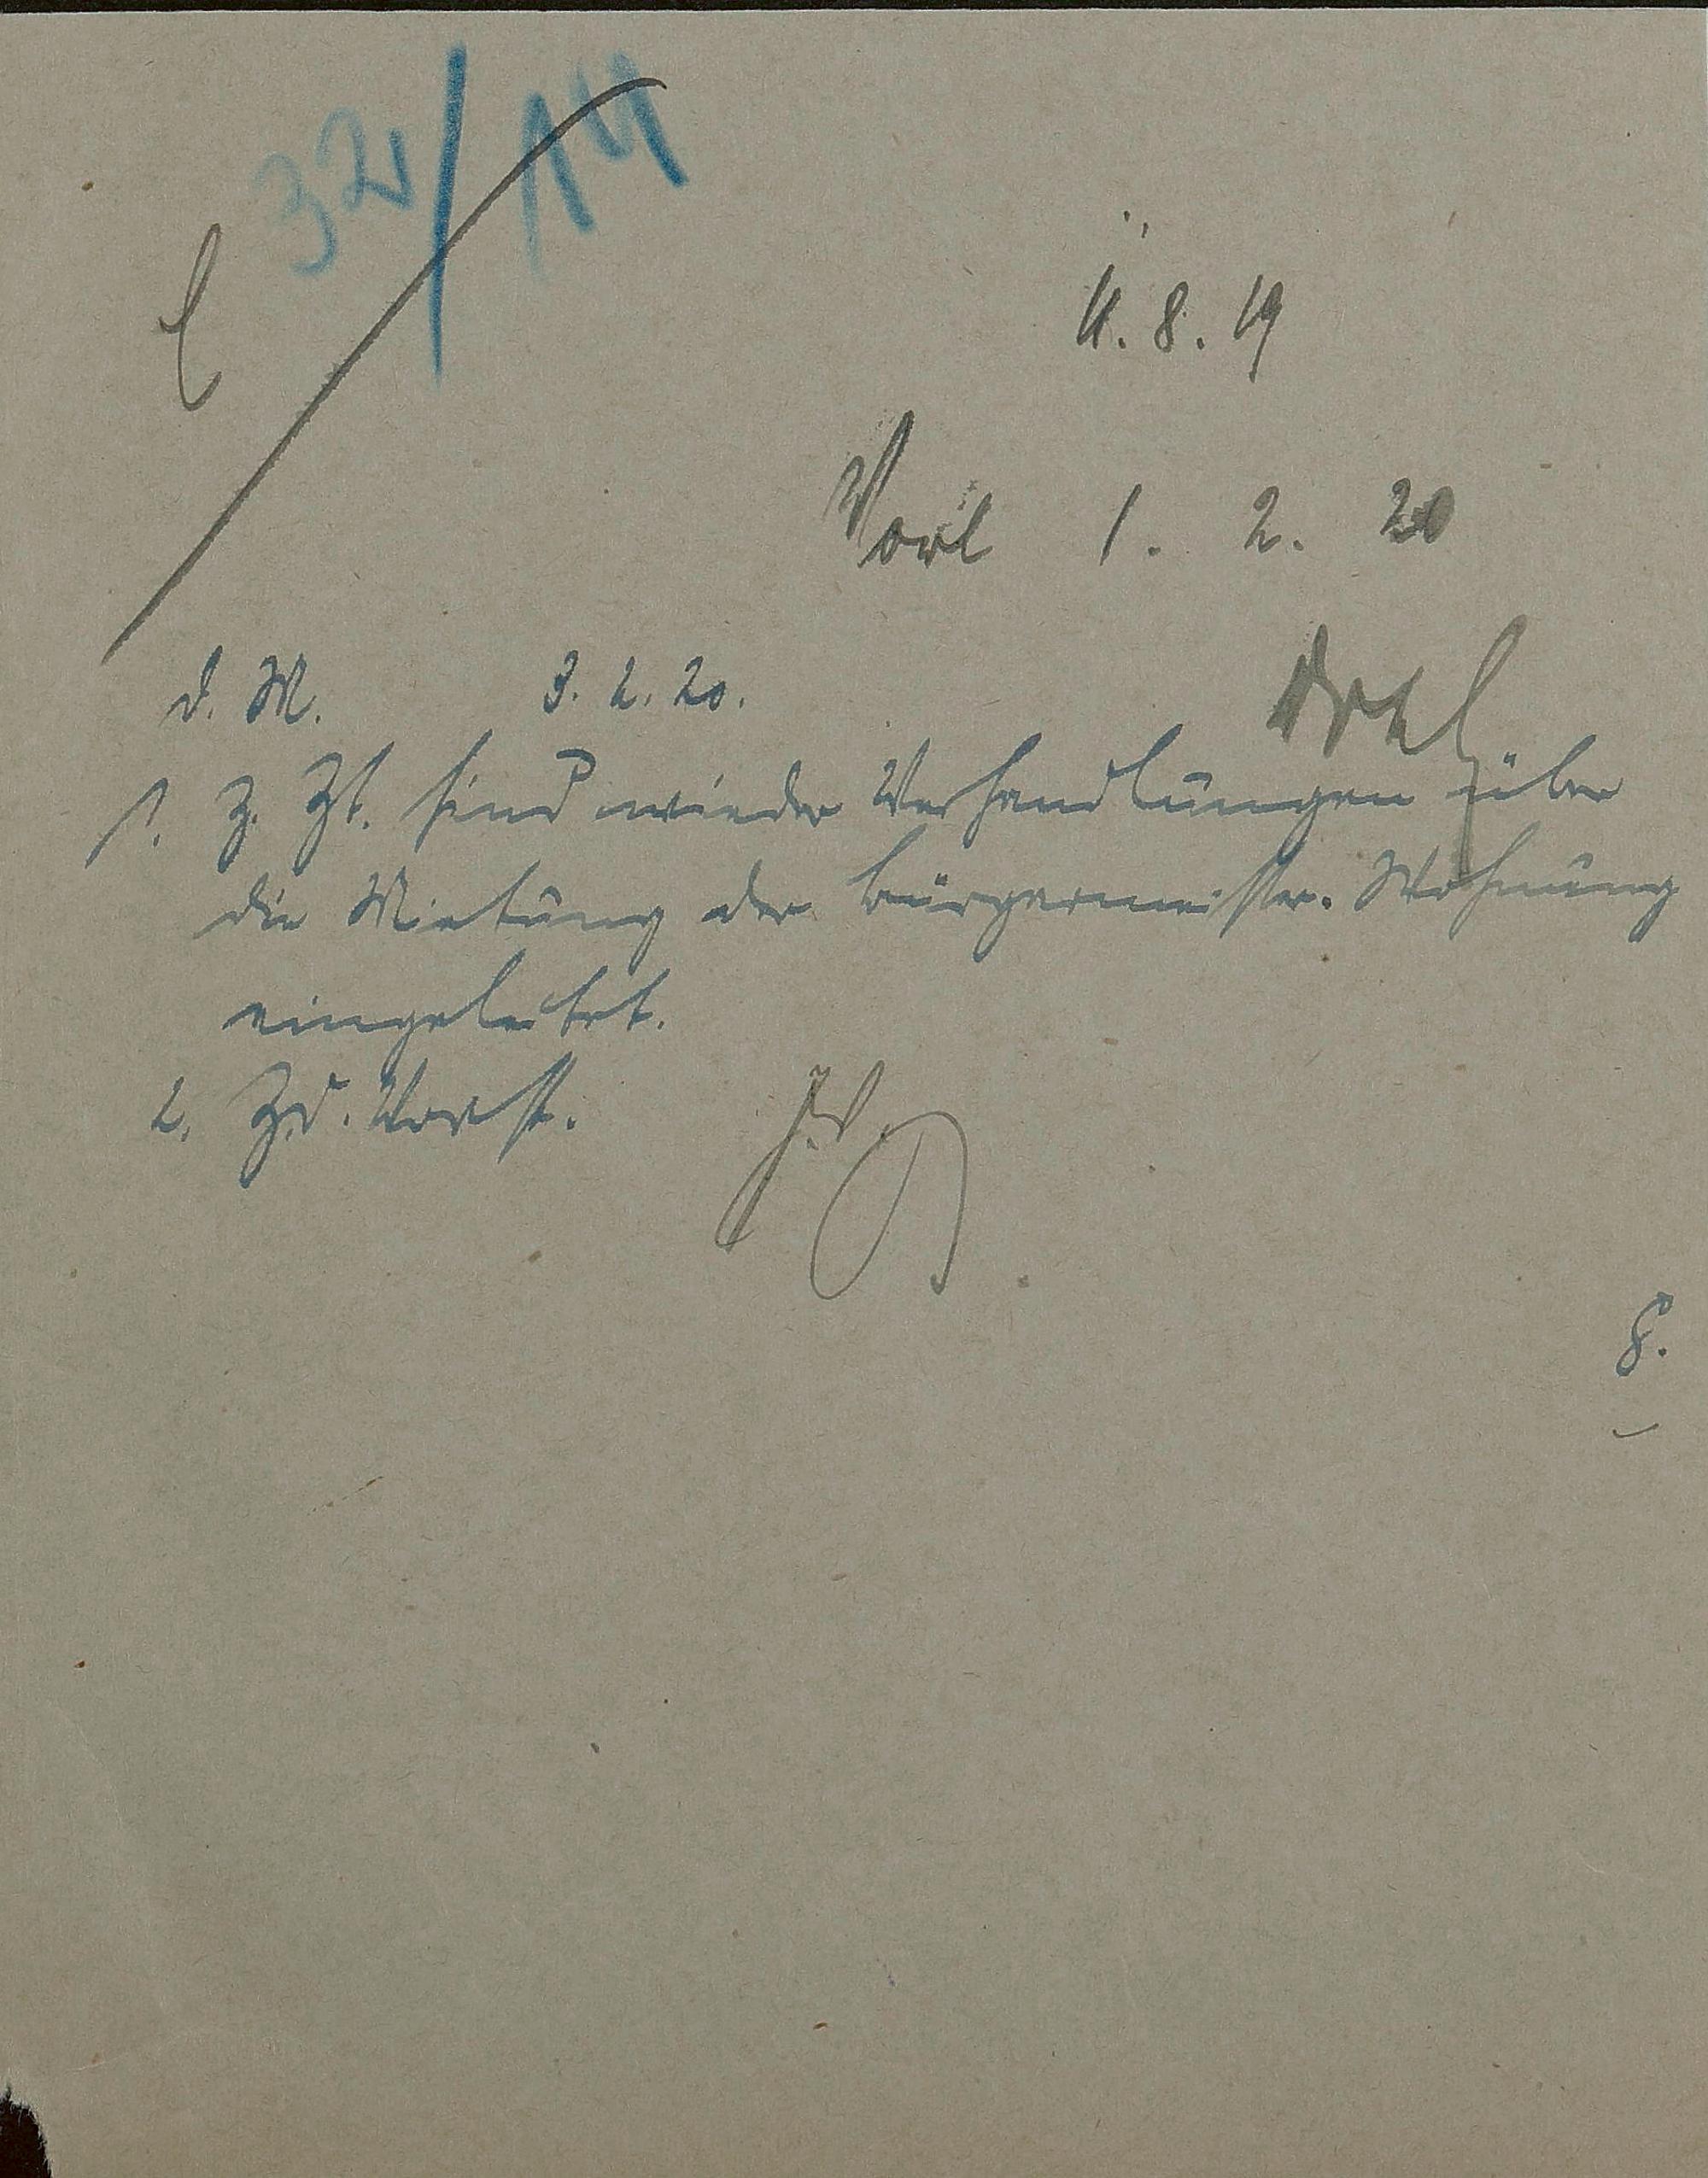 32/14
11. 8. 19
Vorl 1. 2. 20
d. M. 3. 2. 20.
1. Z. Zt. sind wieder Verhandlungen über
die Mietung der bürgermeister. Wohnung
eingeleitet.
2. Zd. Vorst.
J.V.
8.